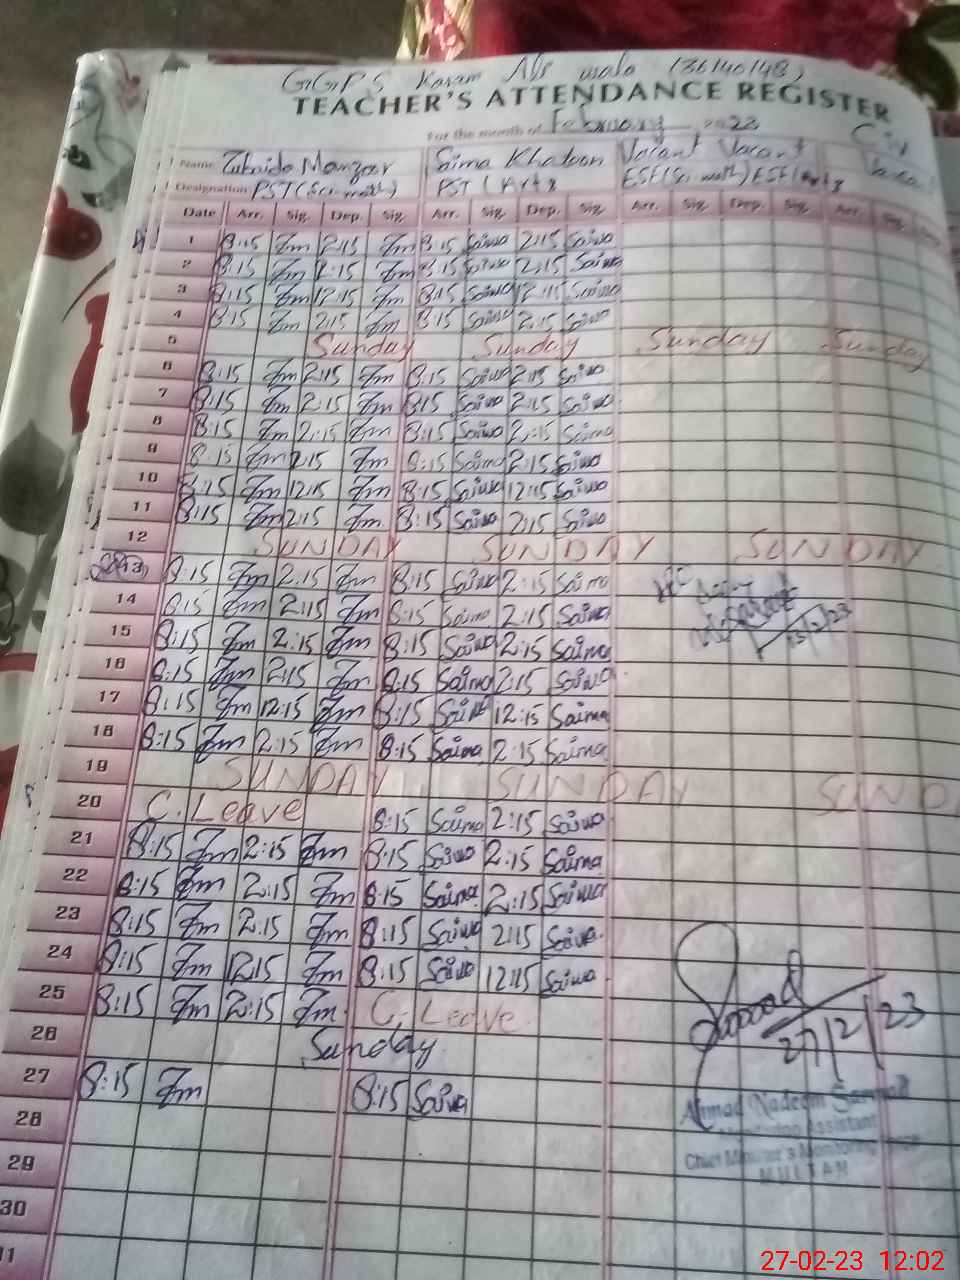 GGPS Karam Ali wala (36140148)
TEACHER'S ATTENDANCE REGISTER
For the month of February 2023
Name Zubaida Manzoor Saima Khatoon Vacant Vacant
Designation PST (Sci. math) PST (Arts ESE (Sci. math) ESE (Arts
Date Arr. Sig. Dep. Sig. Arr. Sig. Dep. Sig. Arr. Sig. Dep. Sig. Arr. Sig.
1 8:15 Zm 2:15 Zm 8:15 Saima 2:15 Saima
2 8:15 Zm 2:15 Zm 8:15 Saima 2:15 Saima
3 8:15 Zm 12:15 Zm 8:15 Saima 12:15 Saima
4 8:15 Zm 2:15 Zm 8:15 Saima 2:15 Saima
5 Sunday Sunday Sunday Sunday
6 8:15 Zm 2:15 Zm 8:15 Saima 2:15 Saima
7 8:15 Zm 2:15 Zm 8:15 Saima 2:15 Saima
8 8:15 Zm 2:15 Zm 8:15 Saima 2:15 Saima
9 8:15 Zm 2:15 Zm 8:15 Saima 2:15 Saima
10 8:15 Zm 12:15 Zm 8:15 Saima 12:15 Saima
11 8:15 Zm 2:15 Zm 8:15 Saima 2:15 Saima
12 SUNDAY SUNDAY SUNDAY
13 8:15 Zm 2:15 Zm 8:15 Saima 2:15 Saima
14 8:15 Zm 2:15 Zm 8:15 Saima 2:15 Saima
15 8:15 Zm 2:15 Zm 8:15 Saima 2:15 Saima 13/2/23
16 8:15 Zm 2:15 Zm 8:15 Saima 2:15 Saima
17 8:15 Zm 12:15 Zm 8:15 Saima 12:15 Saima
18 8:15 Zm 2:15 Zm 8:15 Saima 2:15 Saima
19 SUNDAY SUNDAY SUND
20 C. Leave 8:15 Saima 2:15 Saima
21 8:15 Zm 2:15 Zm 8:15 Saima 2:15 Saima
22 8:15 Zm 2:15 Zm 8:15 Saima 2:15 Saima
23 8:15 Zm 2:15 Zm 8:15 Saima 2:15 Saima
24 8:15 Zm 12:15 Zm 8:15 Saima 12:15 Saima
25 8:15 Zm 2:15 Zm C. Leave
26 Sunday 27/2/23
27 8:15 Zm 8:15 Saima
28
29
30
Ahmad Nadeem Sarmad
Monitoring Assistant
Chief Minister's Monitoring Force
MULTAN
27-02-23 12:02